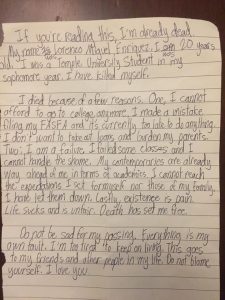 If you're reading this, I'm already dead.
My name is Lorenzo Miguel Enriquez. I am 20 years
old. I was a Temple University Student in my
sophomore year. I have killed myself.
I died because of a few reasons. One, I cannot
afford to go to college anymore. I made a mistake
filing my FASFA and it's currently too late to do anything.
I don't want to take out loans and burden my parents.
Two, I am a failure. I failed some classes and I
cannot handle the shame. My contemporaries are already
way ahead of me in terms of academics. I cannot reach
the expectations I set for myself nor those of my family.
I have let them down. Lastly, existence is pain.
Life sucks and is unfair. Death has set me free.
Do not be sad for my passing. Everything is my
own fault. I'm too tired to keep on living. This goes
to my friends and other people in my life. Do not blame
yourself. I love you